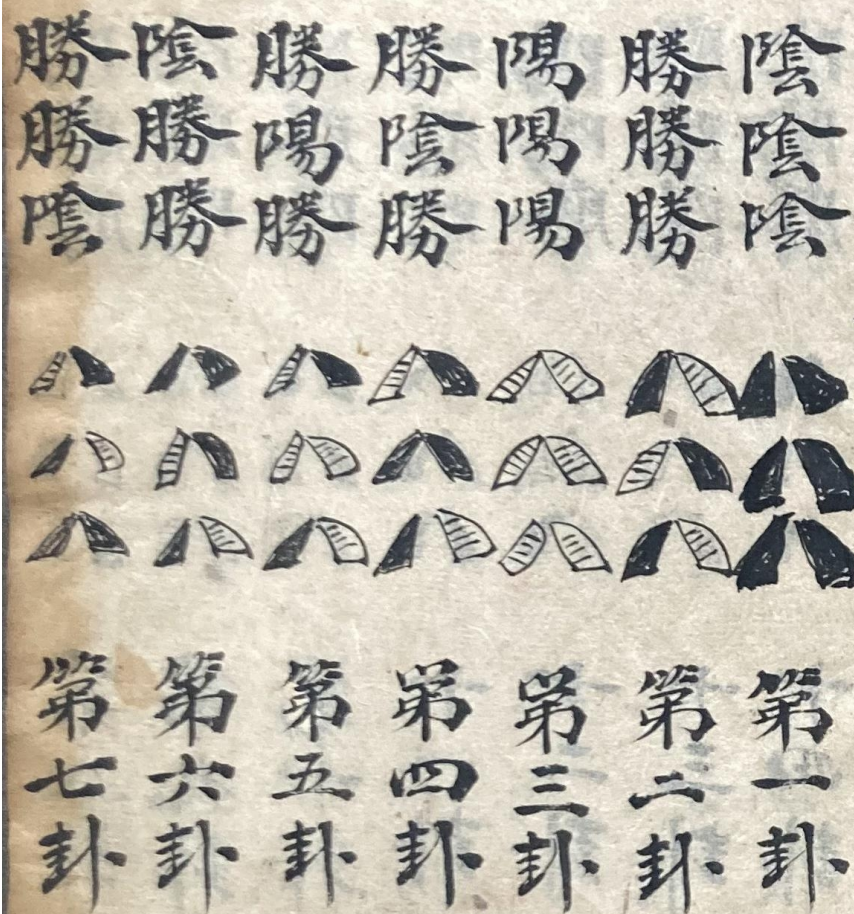 陰陰陰 第一卦
勝勝勝 第二卦
陽陽陽 第三卦
勝陰勝 第四卦
勝陽勝 第五卦
陰勝勝 第六卦
勝勝陰 第七卦